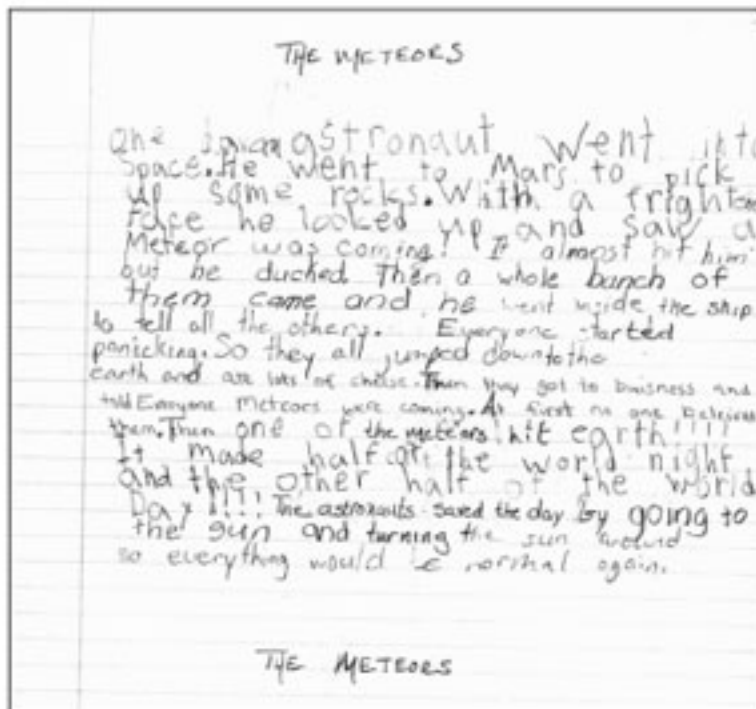 THE METEORS
One astronaut went into
space. He went to Mars to pick
up some rocks. With a frighten
face he looked up and saw a
Meteor was coming! It almost hit him
but he ducked Then a whole bunch of
them came and he went inside the ship
to tell all the others. Everyone started
panicking. So they all jumped down to the
earth and ate lots of cheese. Then they got to buisness and
told Everyone Meteors were coming. At first no one
them. Then one of the meteors hit earth!!!!
It made half of the world night
and the other half of the world
Day!!!! The astronauts saved the day by going to
the sun and turning the sun around
so everything would be normal again.
THE METEORS